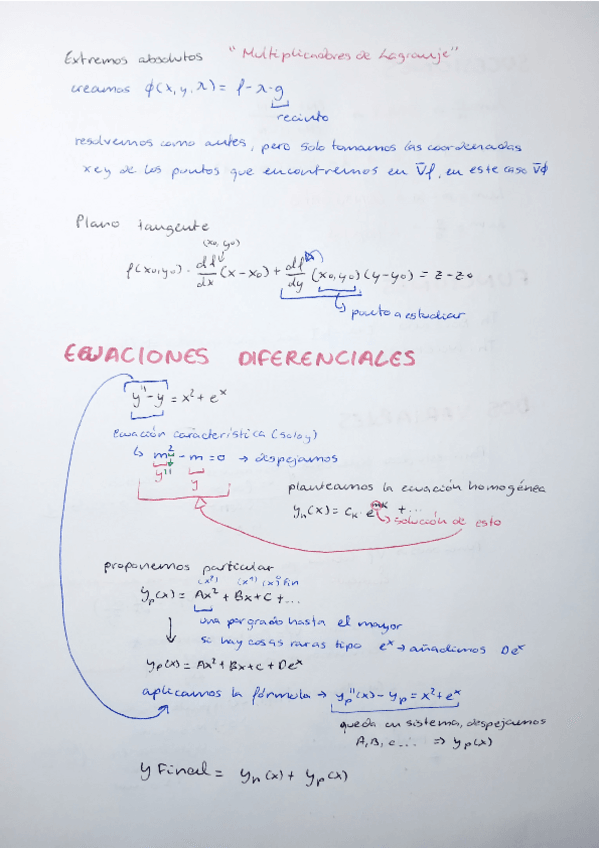 Extremos absolutos "Multiplicadores de Lagranje"
creamos ϕ(x, y, λ) = f - λ · g
recinto
resolvemos como antes, pero solo tomamos las coordenadas
x e y de los puntos que encontremos en ∇f, en este caso ∇ϕ
Plano tangente
(x0, y0)
f(x0, y0) · df/dx (x - x0) + df/dy (x0, y0) (y - y0) = z - z0
punto a estudiar
ECUACIONES DIFERENCIALES
y'' - y = x² + e^x
Ecuación característica (solo y)
m² - m = 0 → despejamos
y'' y
planteamos la ecuación homogénea
y_h(x) = C_k · e^mx + ...
solución de esto
proponemos particular
(x²) (x¹) (x⁰) fin
y_p(x) = Ax² + Bx + C + ...
una por grado hasta el mayor
si hay cosas raras tipo e^x → añadimos De^x
y_p(x) = Ax² + Bx + C + De^x
aplicamos la fórmula → y_p''(x) - y_p = x² + e^x
queda un sistema, despejamos
A, B, C... ⇒ y_p(x)
y Final = y_h(x) + y_p(x)